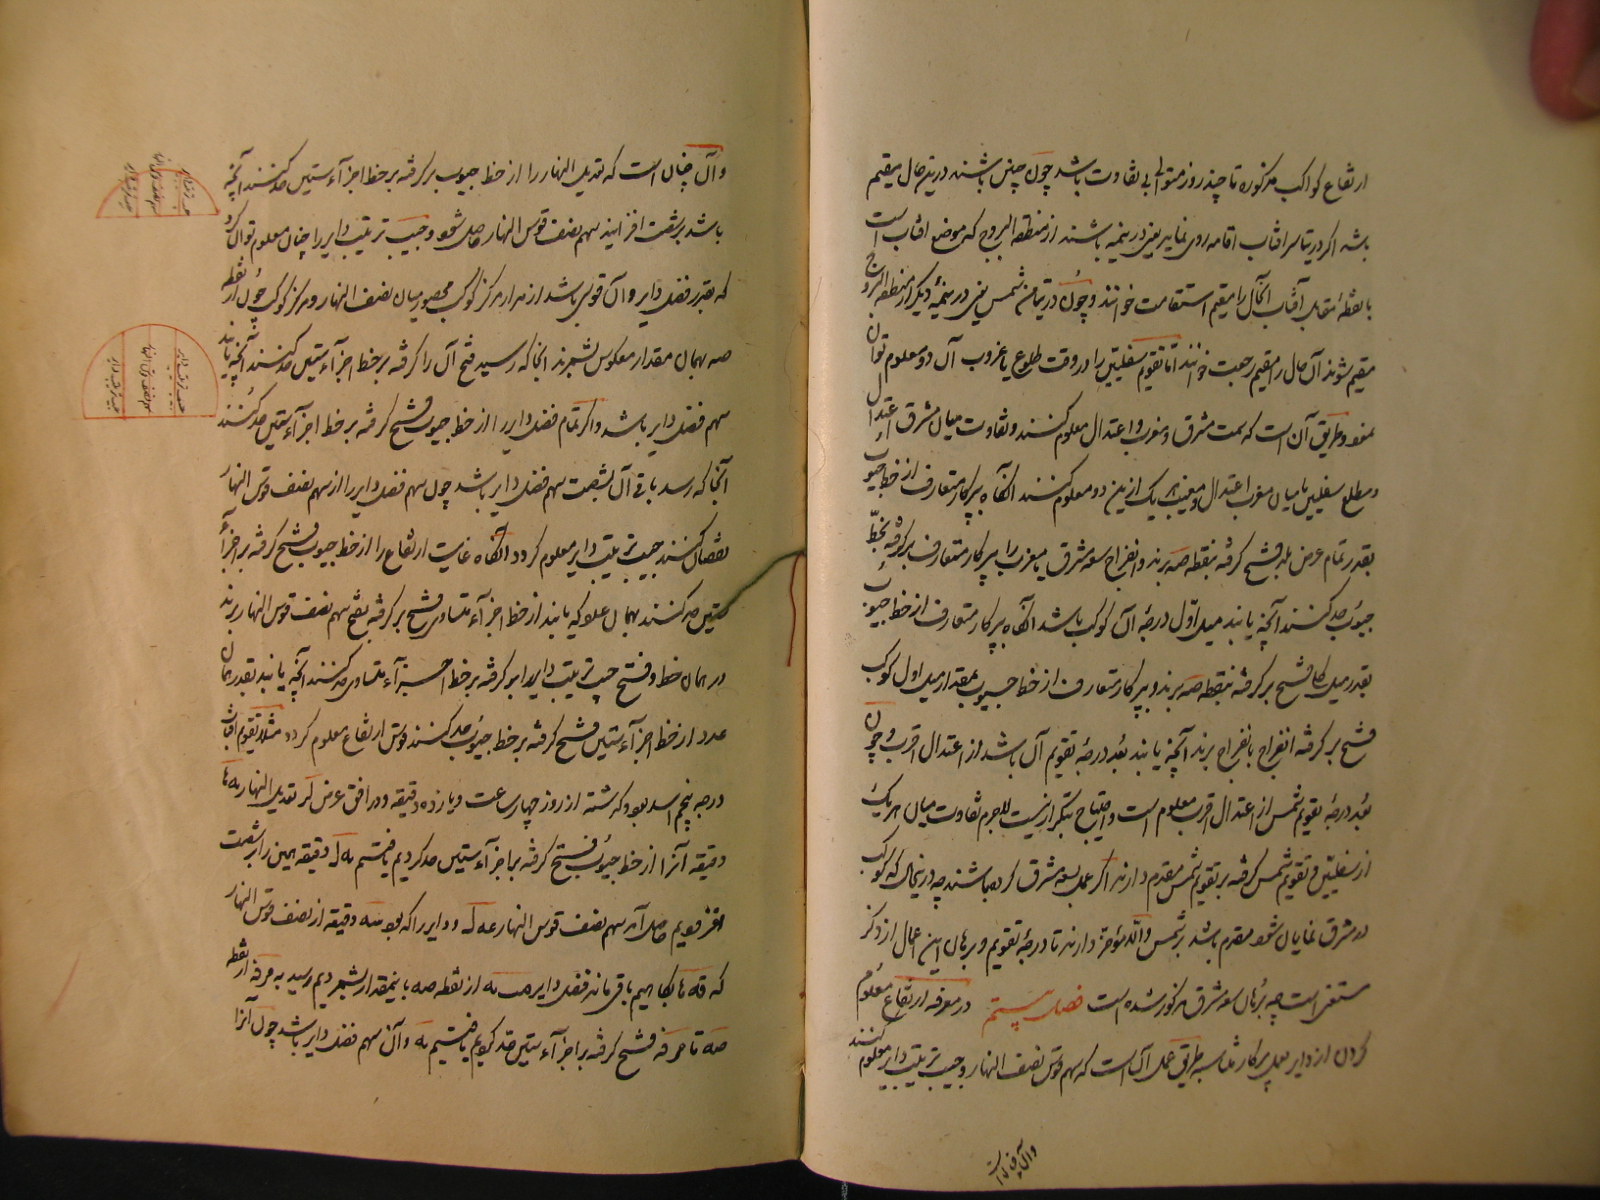 ارتفاع کواکب مذکوره تا چند روز متوالی بی تفاوت باشد چون چنین باشند درینحال مقیم
باشد اگر در یتاسر افتاب اقامه روی نماید یعنی در نیمه باشند از منطقه البروج که موضع افتاب است
یا نقطهٔ مقابل آفتاب آنحال را مقیم استقامت خوانند و چون در تیامن شمس یعنی در نیمهٔ دیگر از منطقه البروج
مقیم شوند آن حال را مقیم رجعت خوانند اما تقویم سفلیین را در وقت طلوع یا غروب آن دو معلوم توان
نمود و طریق آن است که سمت مشرق و مغرب و اعتدال معلوم کنند و تفاوت میان مشرق اعتدال
و مطلع سفلیین یا میان مغرب اعتدال و مغیب هر یک ازین دو معلوم کنند انگاه بپرکار متعارف از خط جیوب
بقدر تمام عرض بلد فتح گرفته بنقطه صه برند و انفراج سعه مشرق یا مغرب را بپرکار متعارف برگرفته بخط
جیوب حد کنند آنچه یابند میل اول درجهٔ آن کوکب باشد انگاه بپرکار متعارف از خط جیوب
بقدر میل کلی فتح برگرفته بنقطه صه برند و بپرکار متعارف از خط جیوب بمقدار میل اول کوکب
فتح برگرفته انفراج بانفراج برند آنچه یابند بعد درجهٔ تقویم آن باشد از اعتدال اقرب و چون
بعد درجهٔ تقویم شمس از اعتدال اقرب معلوم است و احتیاج بتکرار نیست لاجرم تفاوت میان هر یک
از سفلیین و تقویم شمس گرفته بر تقویم شمس مقدم دارند اگر عمل بسعه مشرق کرده باشند چه درینحال که کوکب
در مشرق نمایان شود مقدم باشد بر شمس والّا مؤخر دارند تا درجهٔ تقویم و برهان این اعمال از ذکر
مستغنی است چه برهان سعه مشرق مذکور شده است فصل بیستم در معرفه ارتفاع معلوم
کردن از دایر بعمل پرکار متناسبه طریق عمل آن است که سهم قوس نصف النهار و جیب ترتیب دایر معلوم کنند
وآن چنان است
وآن چنان است که تعدیل النهار را از خط جیوب برگرفته بر خط اجزآء ستین حد کنند آنچه
باشد بر شصت افزایند سهم نصف قوس النهار حاصل شود و جیب ترتیب دایر را چنان معلوم توان کرد
که بقدر فضل دایر و آن قوسی باشد از مدار مرکز کوکب محصور میان نصف النهار و مرکز کوکب چون از نقطه
صه بهمان مقدار معکوس بشمرند انجا که رسید فتح آن را گرفته بر خط اجزآء ستین حد کنند آنچه یابند
سهم فضل دایر باشد و اگر تمام فضل دایر را از خط جیوب فتح گرفته بر خط اجزآء ستین حد کنند
آنجا که رسد باقی آن بشصت سهم فضل دایر باشد چون سهم فضل دایر را از سهم نصف قوس النهار
نقصان کنند جیب ترتیب دایر معلوم گردد انگاه غایت ارتفاع را از خط جیوب فتح گرفته بر اجزآء
ستین حد کنند بهمان علو که یابند از خط اجزآء متساوی فتح برگرفته بفتح سهم نصف قوس النهار برند
در همان خط و فتح جیب ترتیب دایر را برگرفته بر خط اجزآء متساوی حد کنند آنچه یابند بقدر همان
عدد از خط اجزآء ستین فتح گرفته بر خط جیوب حد کنند قوس ارتفاع معلوم گردد مثلا تقویم افتاب
درجه پنجم اسد بود گذشته از روز چهار ساعت و یازده دقیقه و در افق عرض لر تعدیل النهار
دقیقه آنرا از خط جیوب فتح گرفته بر اجزآء ستین حد کردیم یافتیم یه ل دقیقه همین را بر شصت
افزودیم حاصل آمد سهم نصف قوس النهار عه ل و دایر را که بود سه دقیقه از نصف قوس النهار
که قه یا کاهیم باقی ماند فضل دایر مب یه از نقطه صه باینمقدار بشمردیم رسید به مر فه از نقطه
صه تا مر فه فتح گرفته بر اجزآء ستین حد کردیم یافتیم یه و آن سهم فضل دایر باشد چون آنرا